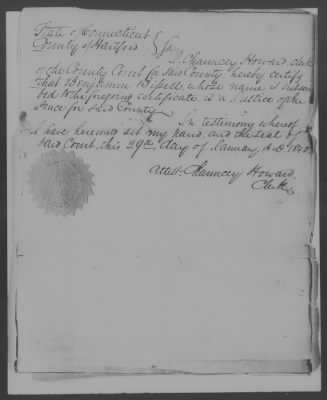 State of Connecticut }
County of Hartford } ss
I, Chauncey Howard, clerk
of the County Court for said County, hereby certify
that Benjamin whose name is subscri
bed to the foregoing certificate, is a Justice of the
Peace for said County
In testimony whereof
I have hereunto set my hand, and the seal of
said Court, this 29th day of January A.D.
Attest. Chauncey Howard
Clerk